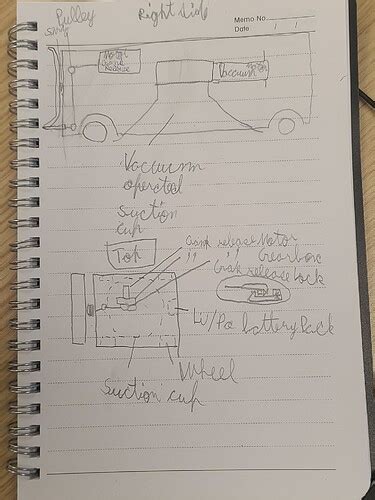 Pulley
Right side
Memo No.
Date
Motor
release
Vaccuum Motor
Vaccuum
operated
suction
cup
Top
release Motor
Gearbox
release lock
battery Pack
Wheel
Suction cup